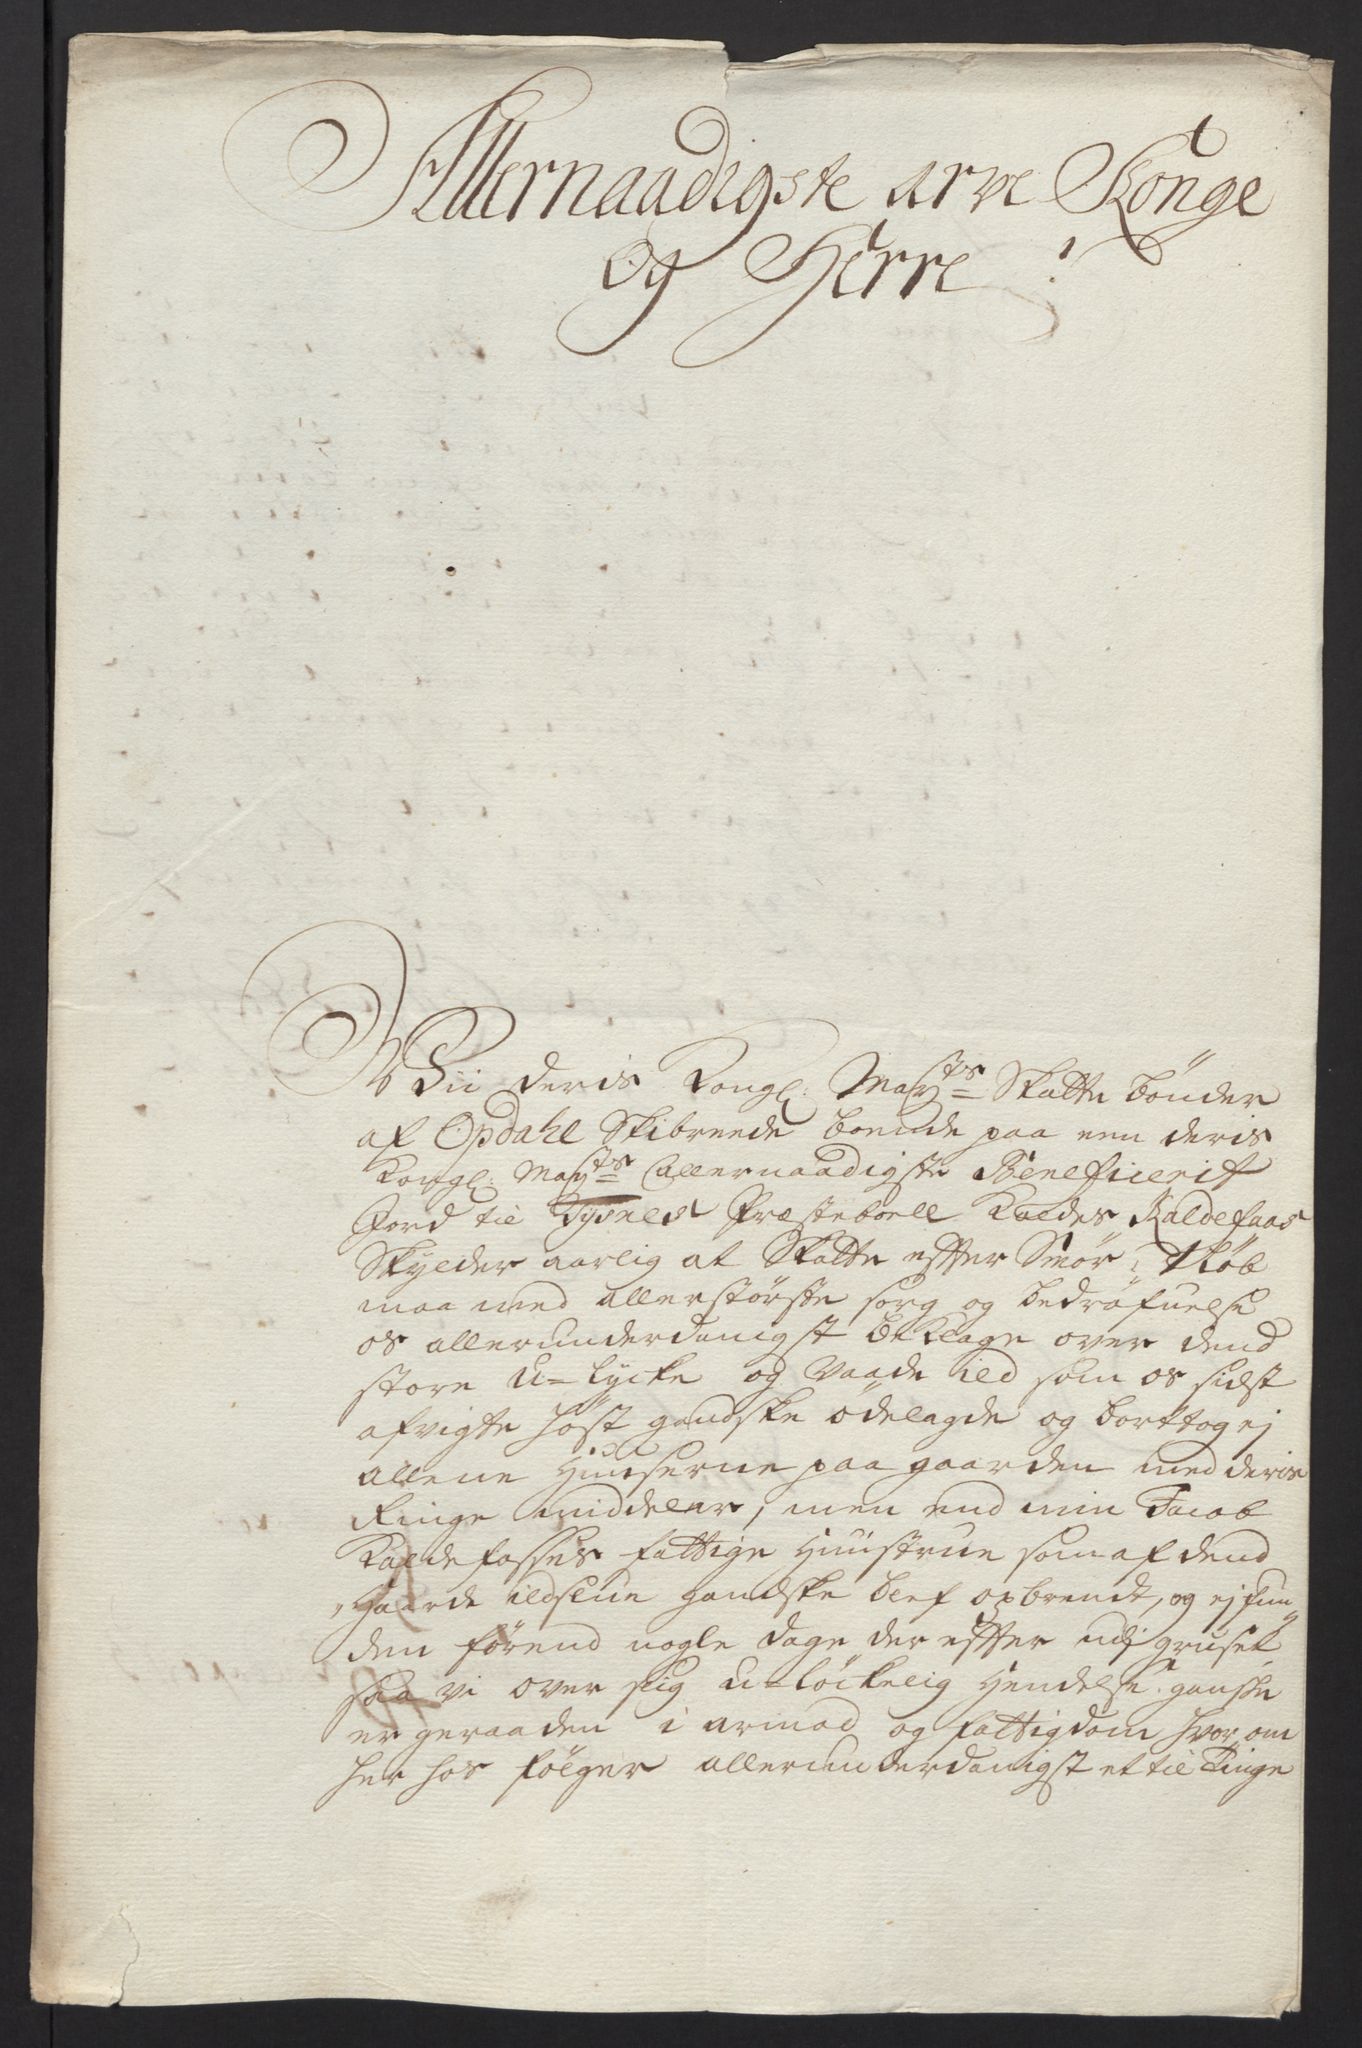 Allernaadigste arve Konge
Og Herre!
Wii deris Kongl: Mayts Skatte bönder
af Opdahl Skibreede boende paa een deris
Kongl: Mayts allernaadigste Beneficerit
Jord til Tysnes Præsteboell Kaldes Kaldefaas
Skylder aarlig at Skatte effter Smör 1 Løb
maa med allerstörste sorg og bedröfuelse
os allerunderdanigst beklage over dend
store u-lycke og vaade ild som os sidst
afvigte höst gandske ödelagde og borttog ej
allene Huuserne paa gaarden med deris
Ringe middeler, men end min Jacob
Kaldefosses fattige Huustrue som af dend
Haarde ildslue gandske blef opbrendt, og ej fun-
den förend nogle dage der effter udj gruset
saa vi over slig u-löckelig Hendelse ganske
er geraaden i armod og fattigdom hvor om
her hos fölger allerunderdanigst et til Tinge